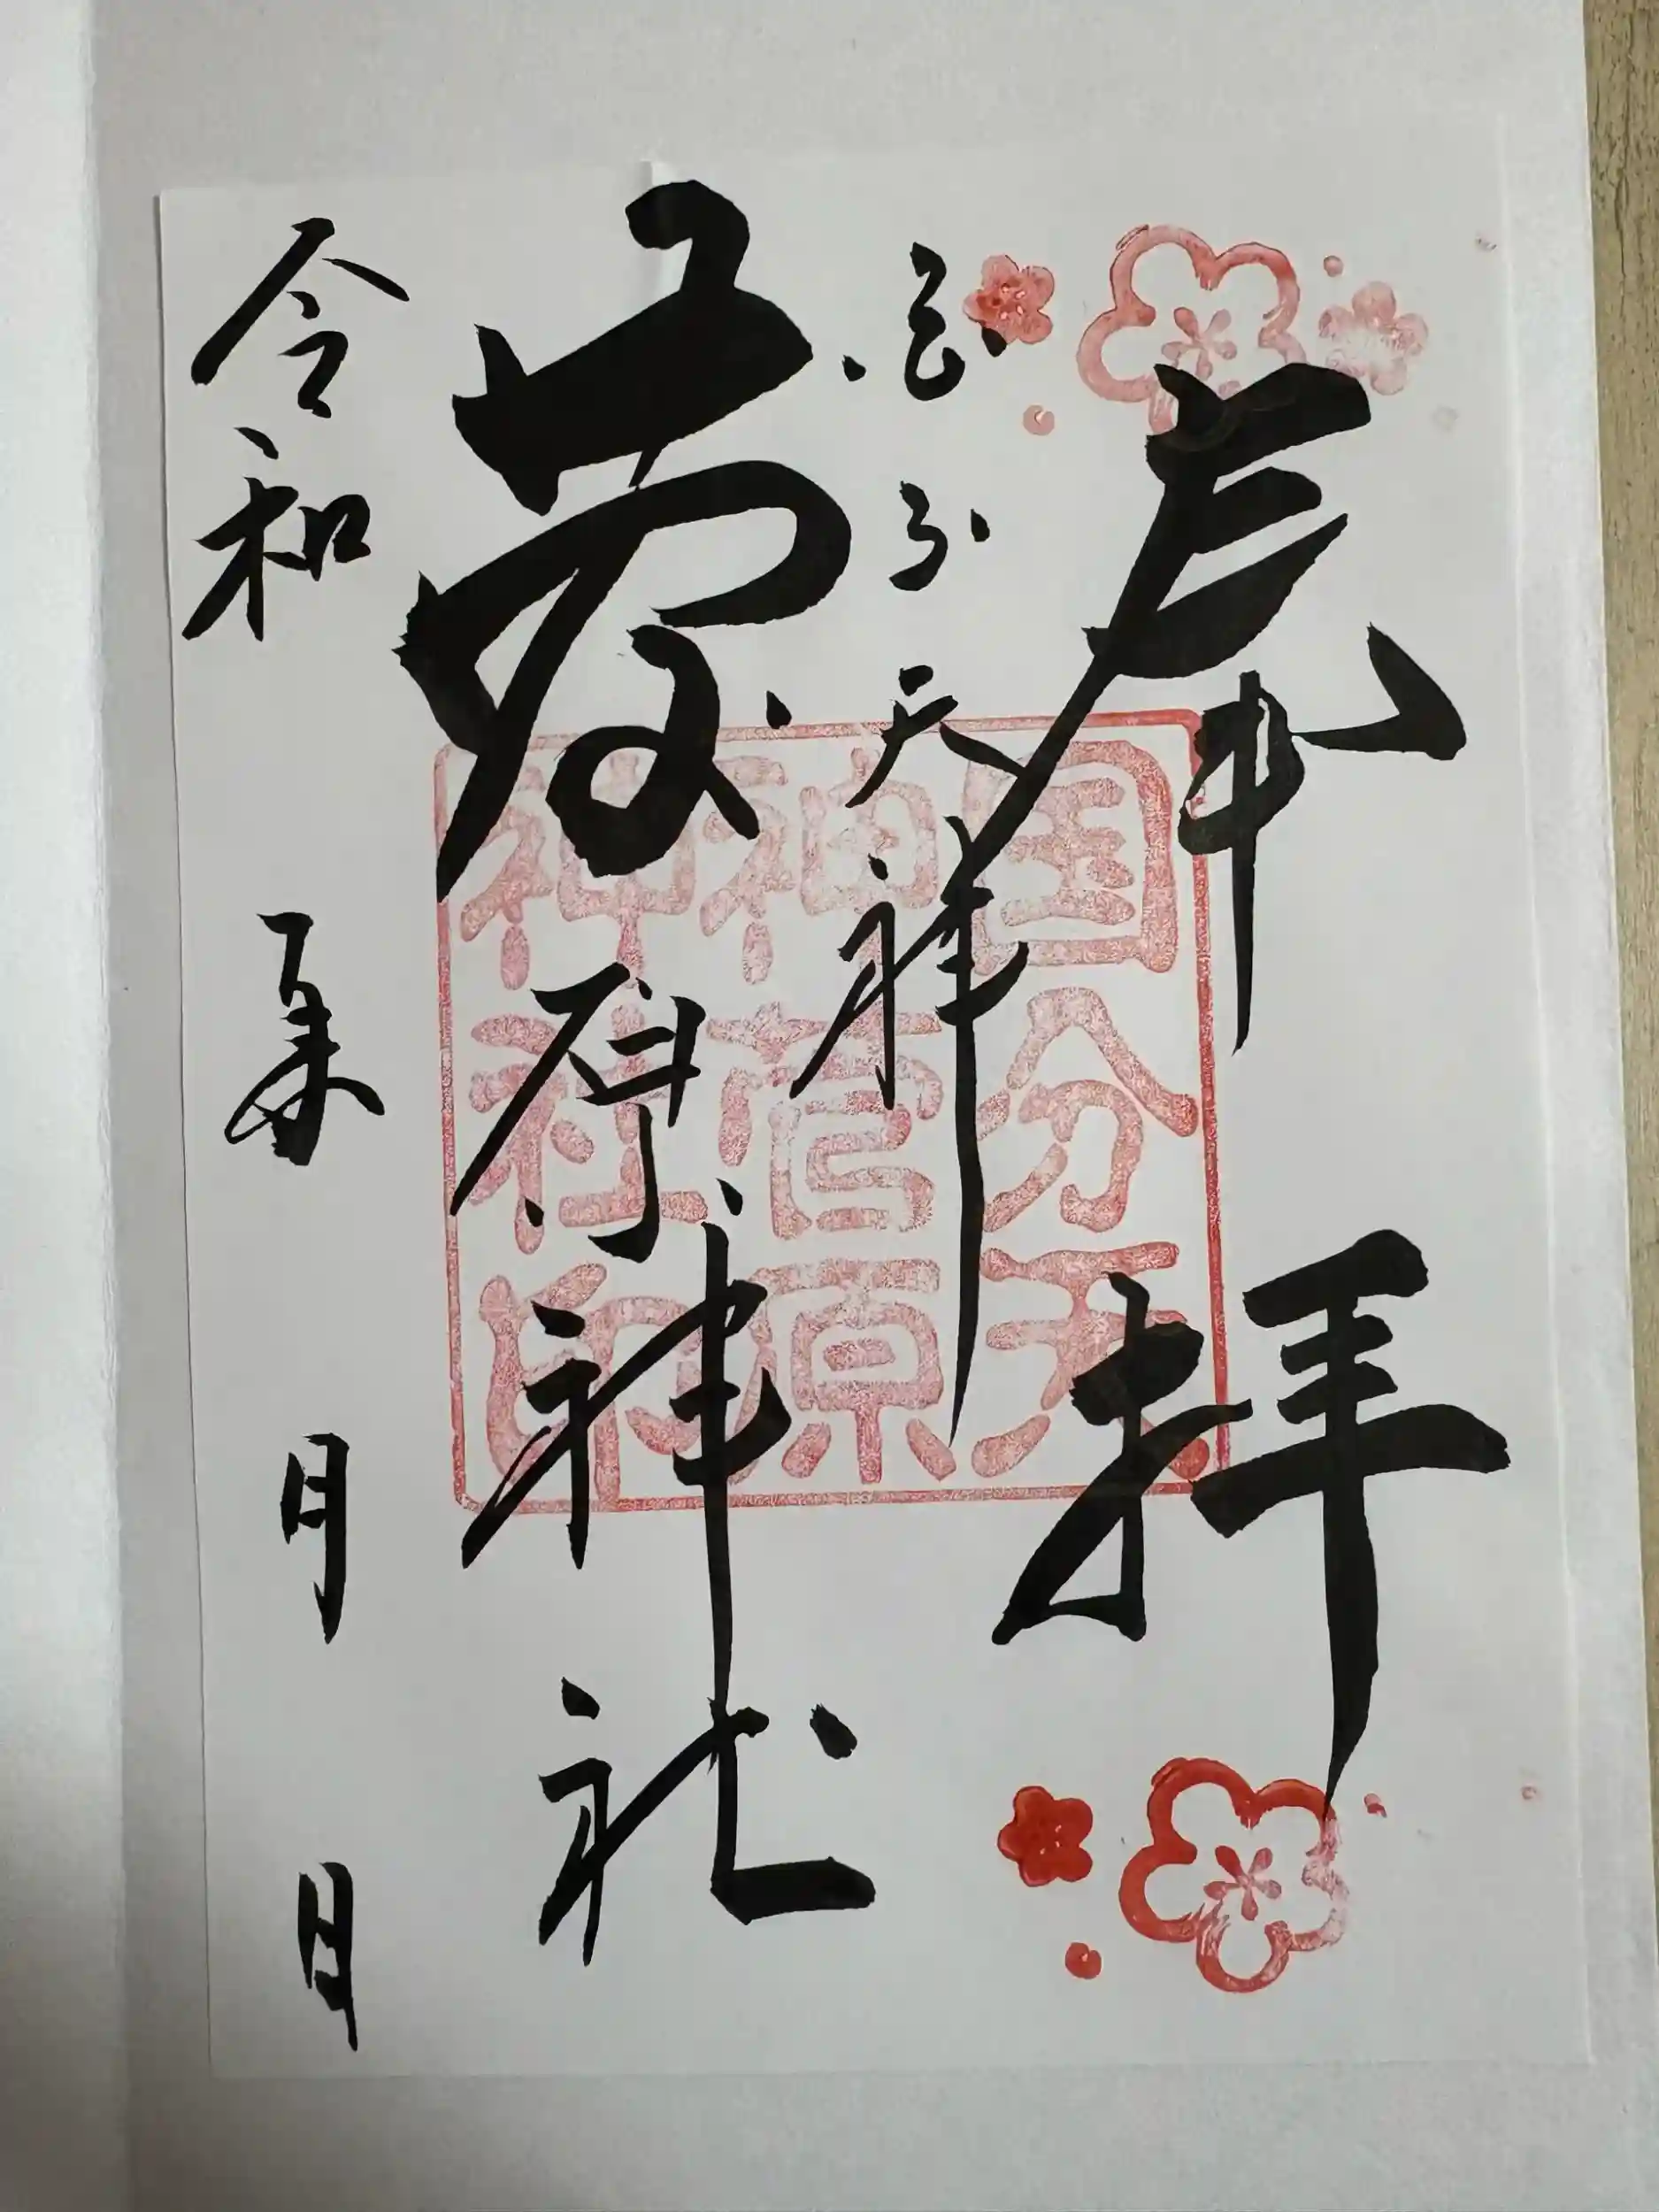 奉拝
国分天神
菅原神社
令和 月 日
国分天
神菅原
神社印